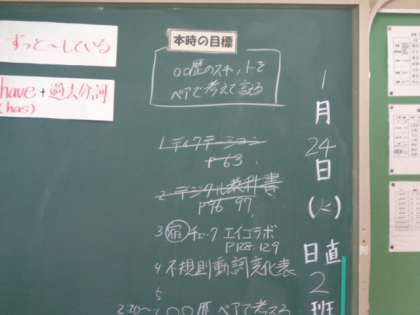 ずっと〜している
have + 過去分詞
(has)
本時の目標
○○歴のスキットを
ペアで考えて言える
1 ディクテーション
P63
2 デジタル教科書
P96 97
3 宿 チェック エイコラボ
P128.129
4 不規則動詞変化表
5
2:20〜 ○○歴 ペアで考える
1月24日(火)
日直
2班